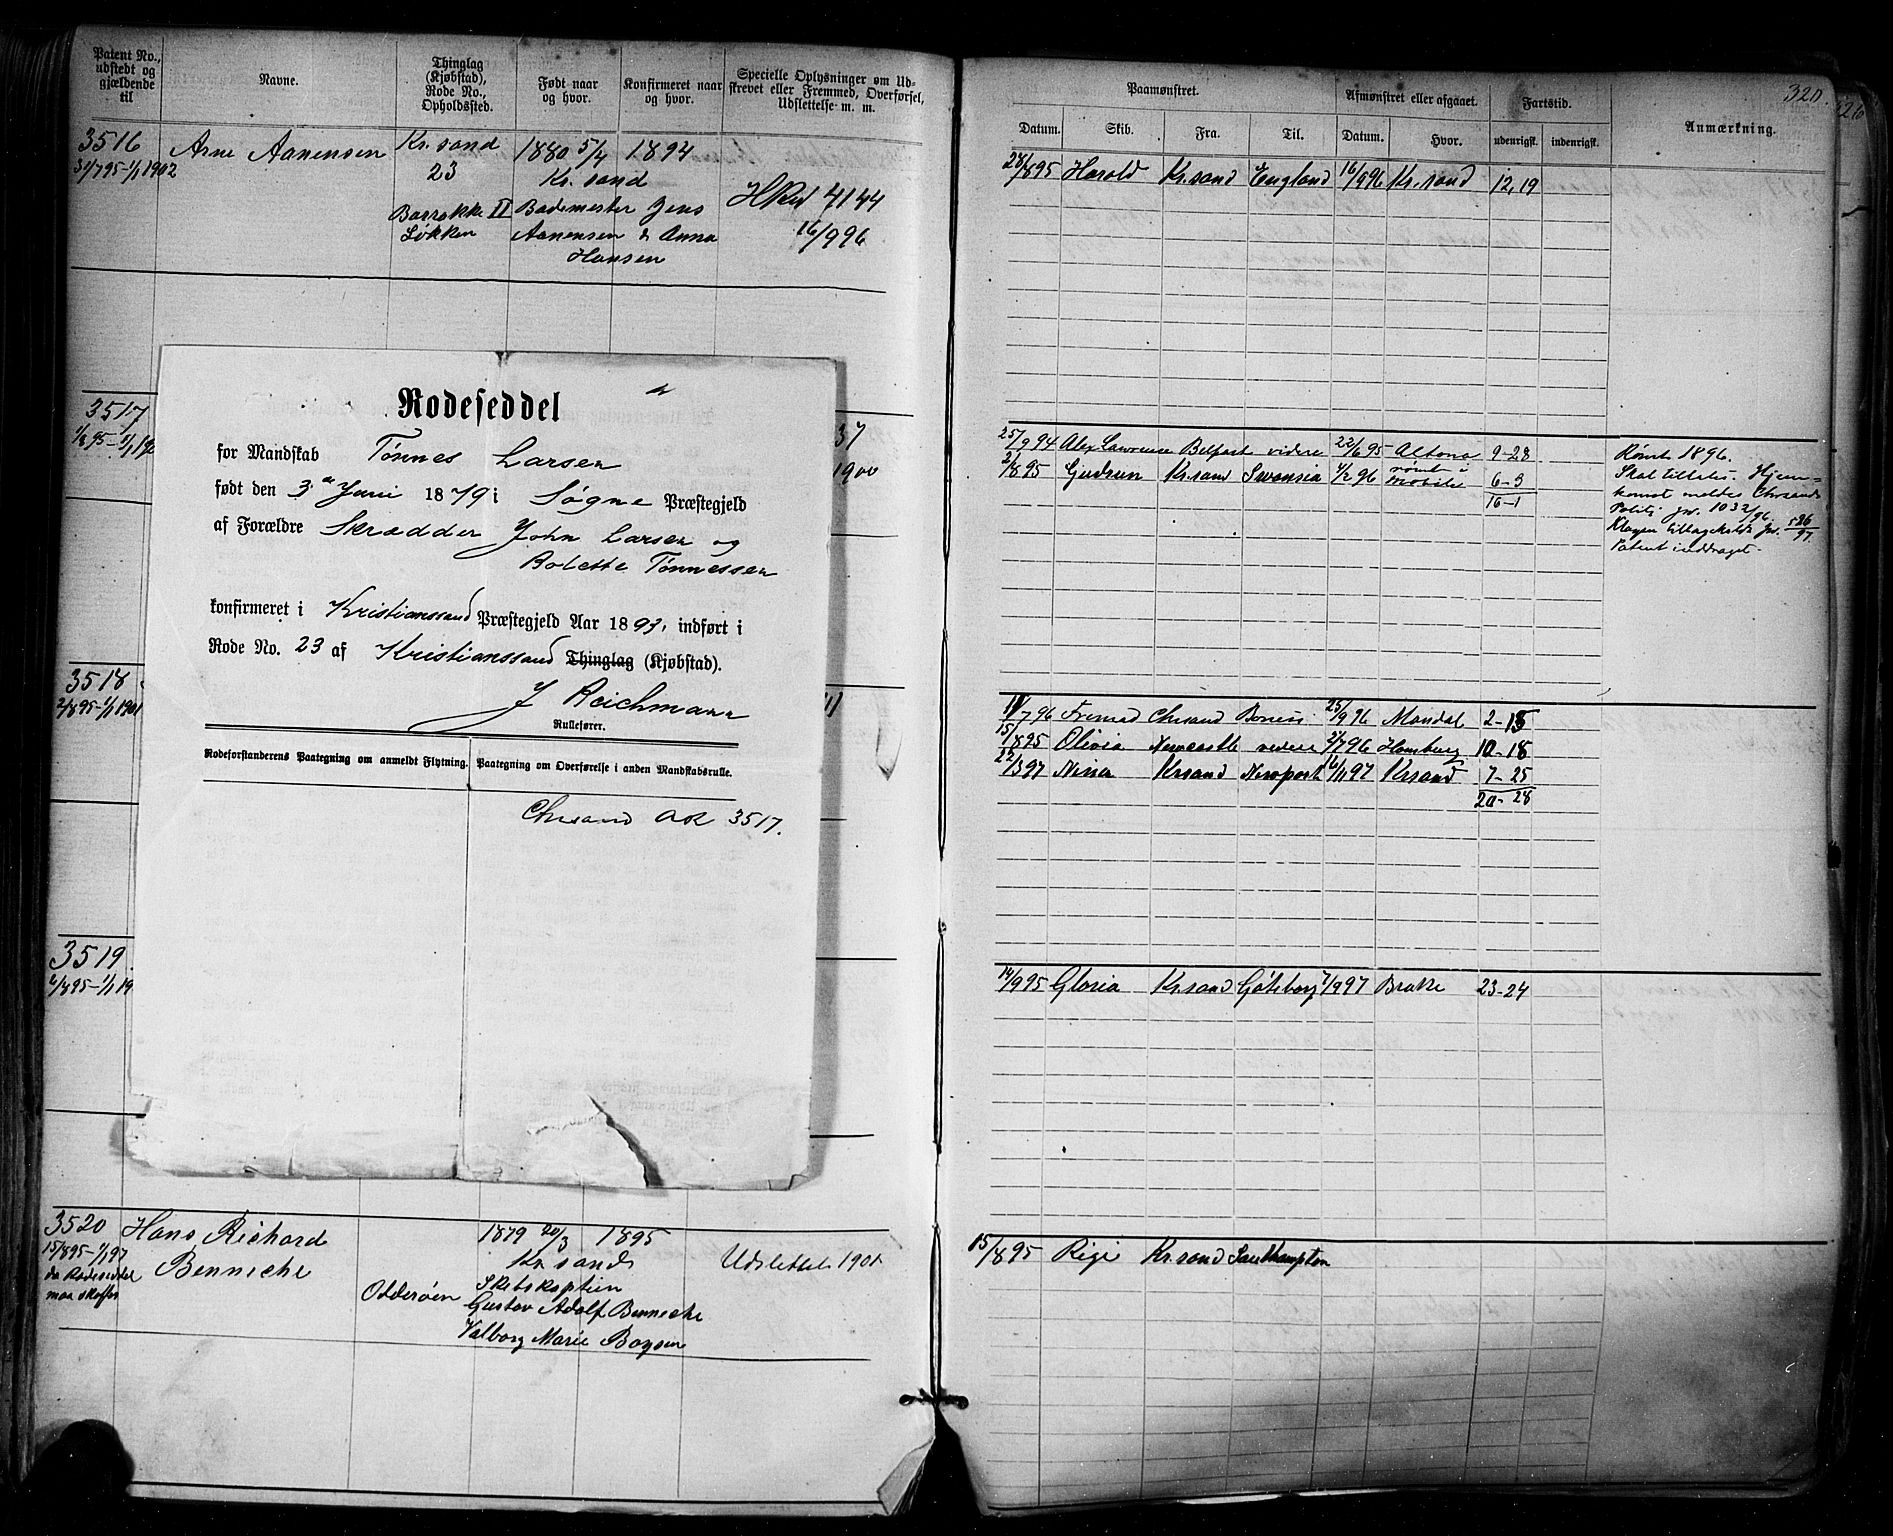 Patent No., udstedt og gjældende til
Navne.
Thinglag (Kjøbstad), Rode No., Opholdssted.
Født naar og hvor.
Konfirmeret naar og hvor.
Specielle Oplysninger om Udskrevet eller Fremmed, Overførsel, Udslettelse m. m.
3516
31/795-1/1 1902
Arne Aanensen
Kr. sand
23
Barrakke II
Løkken
1880 5/4
Kr. sand
Bademester Jens
Aanensen & Anna
Hansen
1894
HRul 4144
16/996
3517
1/895-1/1 19
37
1900
Rodeseddel
for Mandskab Tønnes Larsen
født den 3de Juni 1879 i Søgne Præstegjeld
af Forældre Skrædder John Larsen og
Bolette Tønnessen
konfirmeret i Kristianssand Præstegjeld Aar 1893, indført i
Rode No. 23 af Kristianssand Thinglag (Kjøbstad).
J Reichmann
Rullefører.
Rodeforstanderens Paategning om anmeldt Flytning.
Paategning om Overførelse i anden Mandskabsrulle.
Chrsand AR 3517.
3518
2/895-1/1 1901
3519
6/895-1/1 19
3520
15/895-1/1 97
da Rodeseddel
maa skaffes
Hans Richard
Benneche
Odderøen
1879 20/3
Kr. sand
Skibskaptein
Gustav Adolf Benneche
Valborg Marie Boysen
1895
Udslettet 1901
320.
Paamønstret.
Afmønstret eller afgaaet.
Fartstid.
Anmærkning.
Datum.
Skib.
Fra.
Til.
Datum.
Hvor.
udenrigsk.
indenrigsk.
28/895 Harold Kr. sand England 16/996 Kr. sand 12,19
25/9 94 Alex Lawrence Belfast videre 22/6 95 Altona 9-28
2/8 95 Gudrun Kr. sand Swansea 4/2 96 rømt i Mobile 6-3
16-1
Rømt 1896.
Skal tiltales. Hjem-
komst meldes Chrsands
Politi jn. 1032/96.
Klagen tilbagekaldt jn. 526/97.
Patent inddraget.
11/796 Fremad Chrsand Boness 25/9 96 Mandal 2-15
15/895 Olivia Newcastle videre 2/796 Hamburg 10-18
22/397 Nina Krsand Newport 16/11 97 Krsand 7-25
20-28
14/995 Gloria Kr. sand Göteborg 7/997 Brake 23-24
15/8 95 Rigi Kr. sand Southampton